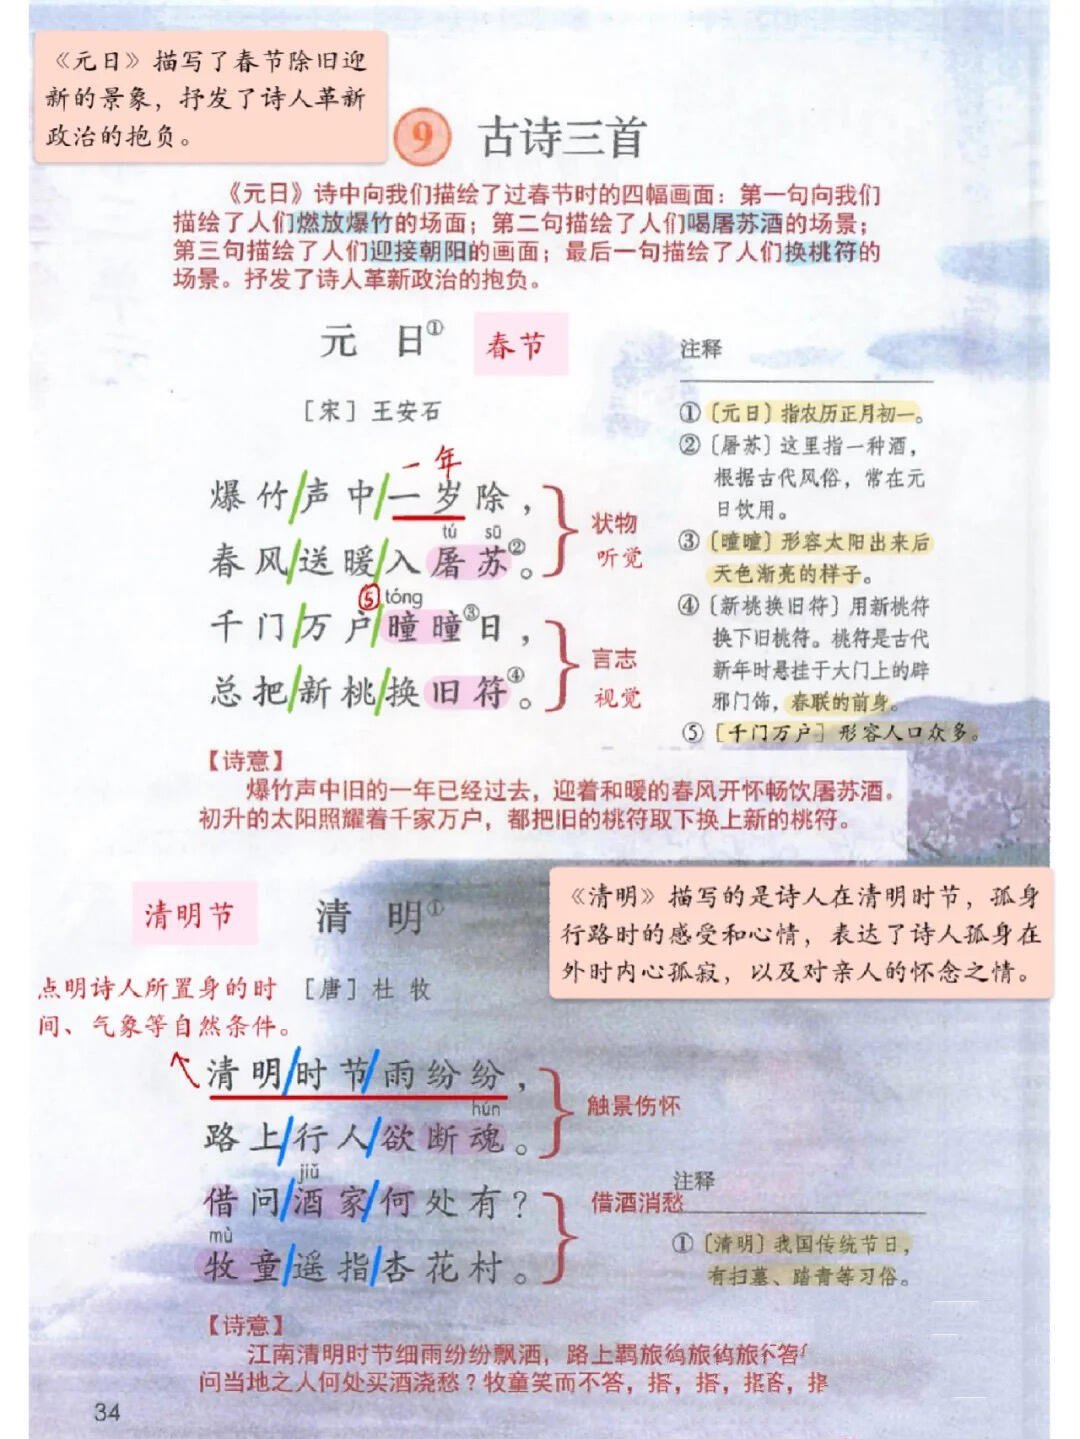 《元日》描写了春节除旧迎
新的景象，抒发了诗人革新
政治的抱负。
9 古诗三首
《元日》诗中向我们描绘了过春节时的四幅画面：第一句向我们
描绘了人们燃放爆竹的场面；第二句描绘了人们喝屠苏酒的场景；
第三句描绘了人们迎接朝阳的画面；最后一句描绘了人们换桃符的
场景。抒发了诗人革新政治的抱负。
元 日① 春节
［宋］王安石
一年
爆竹/声中/一岁除，
tú sū
春风/送暖/入屠苏②。
⑤ tóng
千门/万户/曈曈③日，
总把/新桃/换旧符④。
状物
听觉
言志
视觉
注释
①〔元日〕指农历正月初一。
②〔屠苏〕这里指一种酒，
根据古代风俗，常在元
日饮用。
③〔曈曈〕形容太阳出来后
天色渐亮的样子。
④〔新桃换旧符〕用新桃符
换下旧桃符。桃符是古代
新年时悬挂于大门上的辟
邪门饰，春联的前身。
⑤［千门万户］形容人口众多。
【诗意】
爆竹声中旧的一年已经过去，迎着和暖的春风开怀畅饮屠苏酒。
初升的太阳照耀着千家万户，都把旧的桃符取下换上新的桃符。
清明节 清 明①
《清明》描写的是诗人在清明时节，孤身
行路时的感受和心情，表达了诗人孤身在
外时内心孤寂，以及对亲人的怀念之情。
［唐］杜 牧
点明诗人所置身的时
间、气象等自然条件。
清明/时节/雨纷纷，
hún
路上/行人/欲断魂。
jiǔ
借问/酒家/何处有？
mù
牧童/遥指/杏花村。
触景伤怀
借酒消愁
注释
①〔清明〕我国传统节日，
有扫墓、踏青等习俗。
【诗意】
江南清明时节细雨纷纷飘洒，路上羁旅
问当地之人何处买酒浇愁？牧童笑而不答，
34